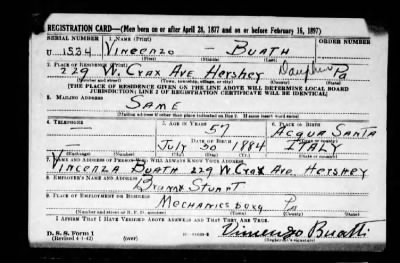 REGISTRATION CARD—(Men born on or after April 28, 1877 and on or before February 16, 1897)
SERIAL NUMBER 1. NAME (Print)
U 1534 VINCENZO — BUATH
(First) (Middle) (Last)
2. PLACE OF RESIDENCE (Print)
229 W. Crax Ave Hershey Dauphin Pa
(Number and street) (Town, township, village, or city) (County) (State)
[THE PLACE OF RESIDENCE GIVEN ON THE LINE ABOVE WILL DETERMINE LOCAL BOARD
JURISDICTION; LINE 2 OF REGISTRATION CERTIFICATE WILL BE IDENTICAL]
3. MAILING ADDRESS
SAME
[Mailing address if other than place indicated on line 2. If same insert word same]
4. TELEPHONE 5. AGE IN YEARS 6. PLACE OF BIRTH
— 57 ACQUA SANTA
DATE OF BIRTH (Town or county)
JULY 30 1884 ITALY
(Exchange) (Number) (Mo.) (Day) (Yr.) (State or country)
7. NAME AND ADDRESS OF PERSON WHO WILL ALWAYS KNOW YOUR ADDRESS
VINCENZA BUATH 229 W. CRAX AVE. HERSHEY
8. EMPLOYER'S NAME AND ADDRESS
9. PLACE OF EMPLOYMENT OR BUSINESS
MECHANICSBURG Pa
(Number and street or R. F. D. number) (Town) (County) (State)
I AFFIRM THAT I HAVE VERIFIED ABOVE ANSWERS AND THAT THEY ARE TRUE.
D. S. S. Form 1
(Revised 4-1-42) (over) (Registrant's signature)